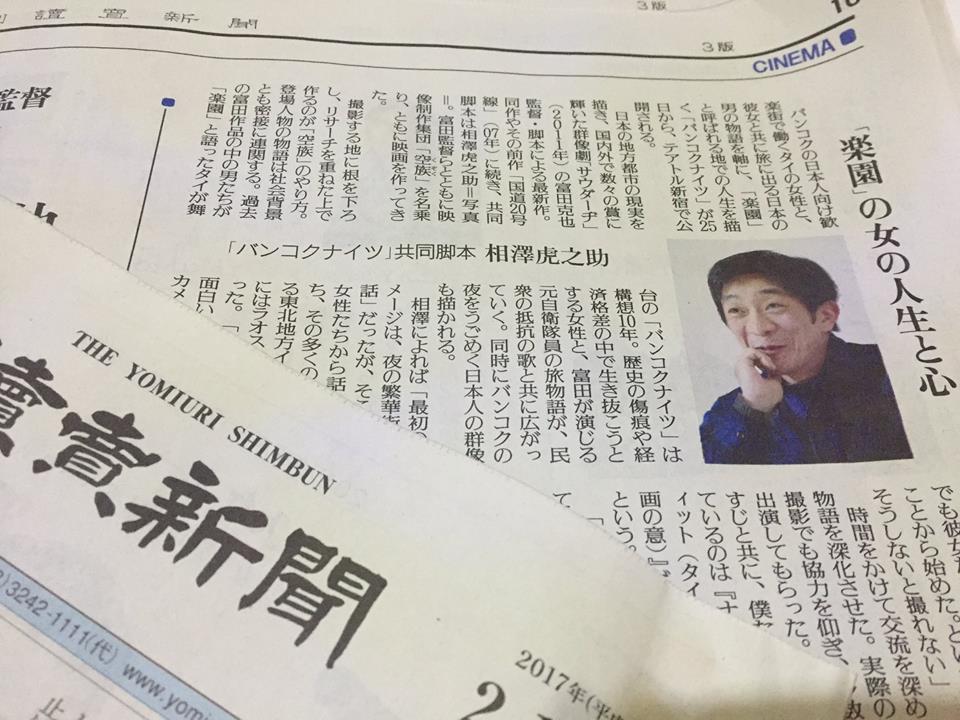 讀賣新聞
3版
3版
CINEMA
「楽園」の女の人生と心
バンコクの日本人向け歓
楽街で働くタイの女性と、
彼女と共に旅に出る日本の
男の物語を軸に、「楽園」
と呼ばれる地での人生を描
く「バンコクナイツ」が25
日から、テアトル新宿で公
開される。
日本の地方都市の現実を
描き、国内外で数々の賞に
輝いた群像劇「サウダーヂ」
(2011年)の富田克也
監督・脚本による最新作。
同作やその前作「国道20号
線」(07年)に続き、共同
脚本は相澤虎之助=写真
=。富田監督らとともに映
像制作集団「空族」を名乗
り、ともに映画を作ってき
た。
撮影する地に根を下ろ
し、リサーチを重ねた上で
作るのが「空族」のやり方。
登場人物の物語は社会背景
とも密接に連関する。過去
の富田作品の中の男たちが
「楽園」と語ったタイが舞
「バンコクナイツ」共同脚本 相澤虎之助
台の「バンコクナイツ」は
構想10年。歴史の傷痕や経
済格差の中で生き抜こうと
する女性と、富田が演じる
元自衛隊員の旅物語が、民
衆の抵抗の歌と共に広がっ
ていく。同時にバンコクの
夜をうごめく日本人の群像
も描かれる。
相澤によれば「最初の
メージは、夜の繁華街
話」だったが、そ
女性たちから話
ち、その多くの
る東北地方イ
にはラオス、
った。「
面白い
カメ
でも彼女た
ことから始めた。とい
そうしないと撮れない」
時間をかけて交流を深め
物語を深化させた。実際の
撮影でも協力を仰ぎ、
出演してもらった。
すじと共に、僕た
ているのは『ナ
ィット(タイ
画の意)』
という。
「
て
監督
THE YOMIURI SHIMBUN
讀賣新聞
)3242-1111(代) www.yomi
2017年(平成
2